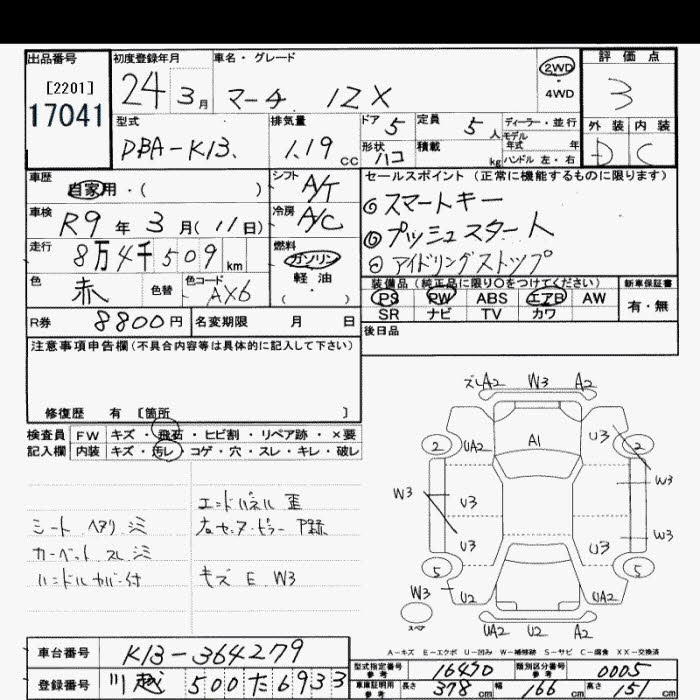 出品番号 初度登録年月 車名・グレード 2WD 評価点
[2201] 24年 3月 マーチ 12X 4WD 3
17041
型式 排気量 ドア 5 定員 5人 ディーラー・並行 外装 内装
モデル年式 年
DBA-K13. 1.19cc 形状 ハコ 積載 kg ハンドル 左・右 D C
車歴 シフト A/T セールスポイント (正常に機能するものに限ります)
自家用・( ) ◎スマートキー
車検 R9年 3月(11日) 冷房 A/C ◎プッシュスタート
走行 8万4千509km 燃料 ガソリン ◎アイドリングストップ
軽油 ( )
色 赤 色替 色コード AX6 装備品(純正品に限り○をつけてください) 新車保証書
PS PW ABS エアB AW 有・無
R券 8800円 名変期限 月 日 SR ナビ TV カワ
後日品
注意事項申告欄(不具合内容等は具体的に記入して下さい)
修復歴 有 [箇所 ]
検査員 FW キズ・飛石・ヒビ割・リペア跡・×要
記入欄 内装 キズ・汚レ・コゲ・穴・スレ・キレ・破レ
エンドパネル 歪
シート ヘタリ シミ
カーペット スレ シミ
ハンドルカバー付 キズ E W3
ズレA2 W3 A2
A1
2 UA2 U3 2
W3 U3 W3
U3 U3 W3
5 5
W3 U2 UA2
スペア
UA2 U2 A2
A-キズ E-エクボ U-凹み W-補修跡 S-サビ C-腐食 XX-交換済
車台番号 K13-364279
型式指定番号 参考 16430 類別区分番号 参考 0005
登録番号 川越 500 た 6933
車庫証明用 参考 長さ 378cm 幅 166cm 高さ 151cm